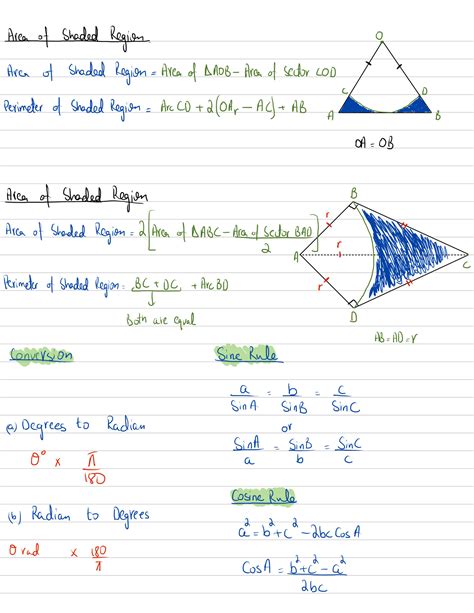 Area of Shaded Region
Area of Shaded Region = Area of ΔAOB - Area of Sector COD
Perimeter of Shaded Region = Arc CD + 2(OA, - AC) + AB
O
C
D
A
B
OA = OB
Area of Shaded Region
Area of Shaded Region = 2[Area of ΔABC - Area of Sector BAD / 2]
Perimeter of Shaded Region = BC + DC + Arc BD
Both are equal
B
r
A
r
C
r
D
AB = AD = r
Conversion
(a) Degrees to Radian
θ° × π/180
(b) Radian to Degrees
θ rad × 180/π
Sine Rule
a/SinA = b/SinB = c/SinC
or
SinA/a = SinB/b = SinC/c
Cosine Rule
a² = b² + c² - 2bc CosA
CosA = b² + c² - a² / 2bc